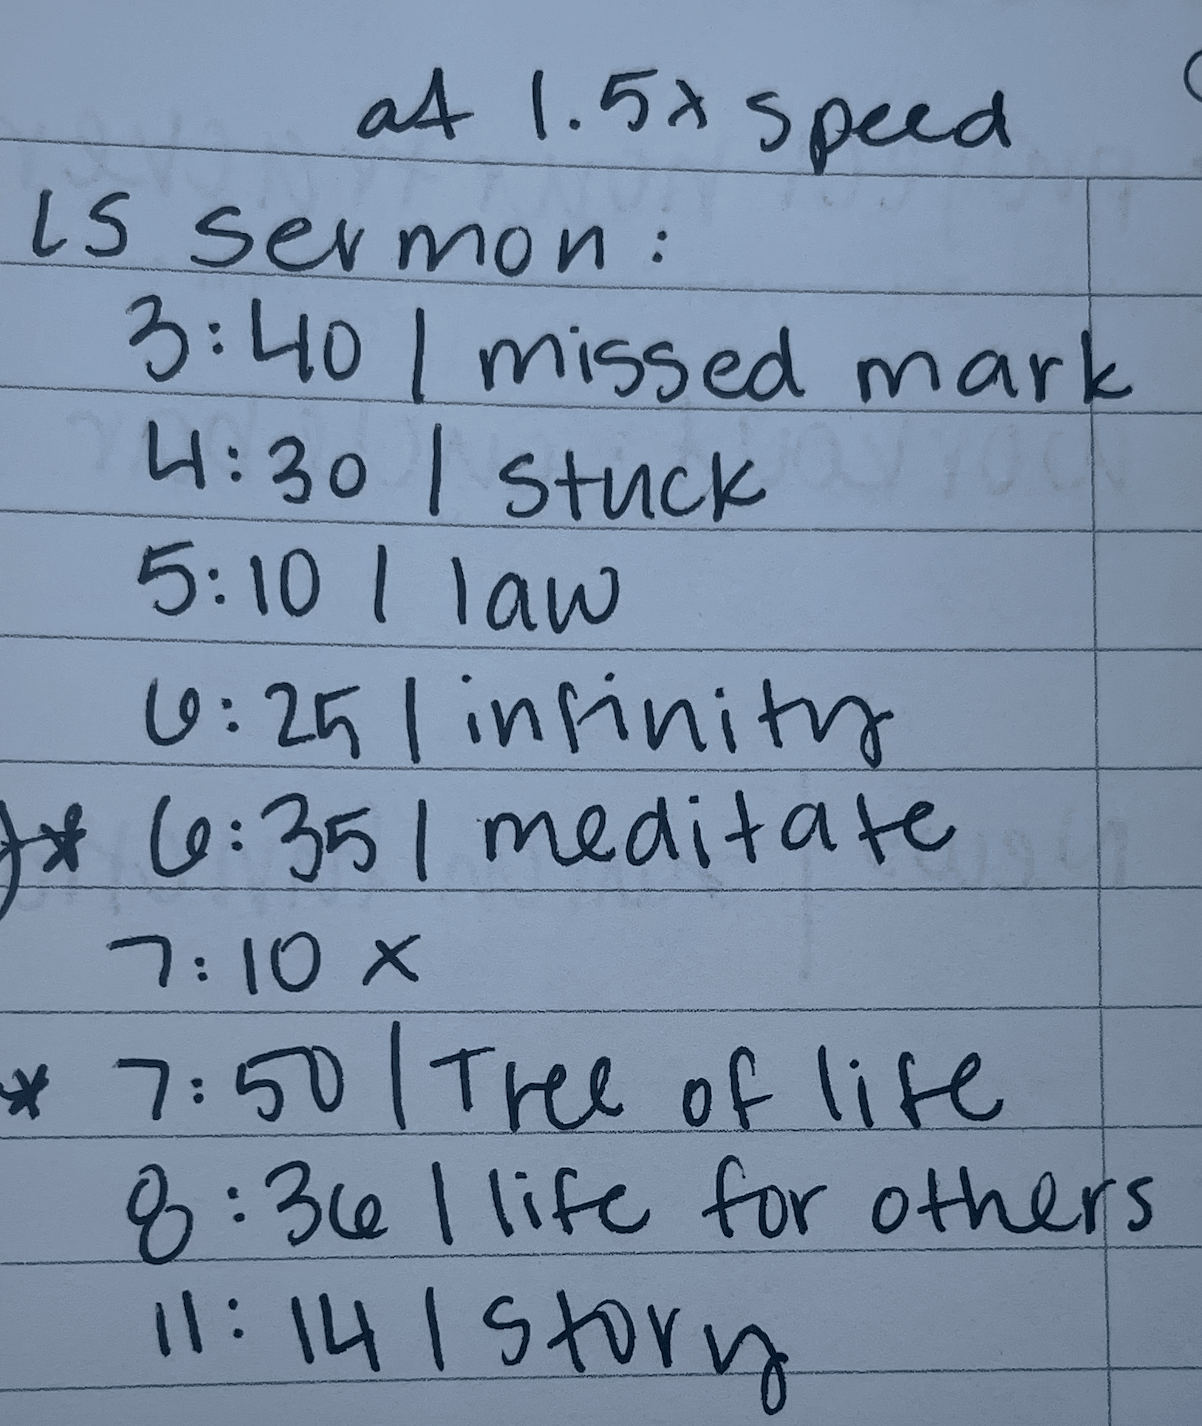 at 1.5x speed
LS sermon:
3:40 | missed mark
4:30 | stuck
5:10 | law
6:25 | infinity
* 6:35 | meditate
7:10 x
* 7:50 | Tree of life
8:36 | life for others
11:14 | story